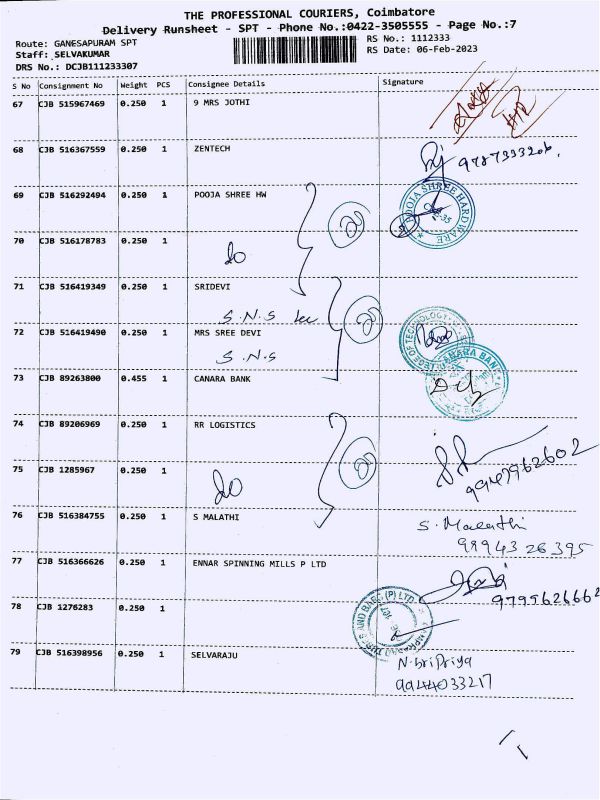 THE PROFESSIONAL COURIERS, Coimbatore
Delivery Runsheet - SPT - Phone No.:0422-3505555 - Page No.:7
Route: GANESAPURAM SPT
RS No.: 1112333
Staff: SELVAKUMAR
RS Date: 06-Feb-2023
DRS No.: DCJB111233307
S No Consignment No Weight PCS Consignee Details Signature
67 CJB 515967469 0.250 1 9 MRS JOTHI
68 CJB 516367559 0.250 1 ZENTECH
69 CJB 516292494 0.250 1 POOJA SHREE HW
POOJA SHREE HARDWARE
70 CJB 516178783 0.250 1
do
71 CJB 516419349 0.250 1 SRIDEVI
S.N.S
72 CJB 516419490 0.250 1 MRS SREE DEVI
S.N.S
73 CJB 89263800 0.455 1 CANARA BANK
CANARA BANK
74 CJB 89206969 0.250 1 RR LOGISTICS
75 CJB 1285967 0.250 1
do
76 CJB 516384755 0.250 1 S MALATHI
S. Malathi
9994326395
77 CJB 516366626 0.250 1 ENNAR SPINNING MILLS P LTD
9795626662
78 CJB 1276283 0.250 1
79 CJB 516398956 0.250 1 SELVARAJU
N. SriPriya
9944033217